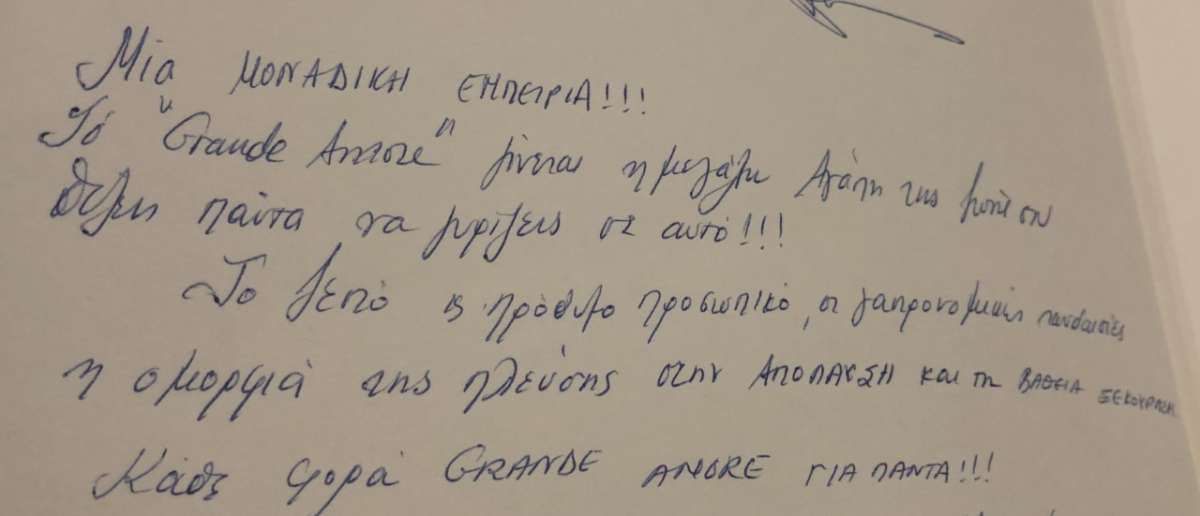 Μία ΜΟΝΑΔΙΚΗ ΕΜΠΕΙΡΙΑ!!!
Τό "Grande Amore" γίνεται η μεγάλη Αγάπη της ζωής σου
Θέλεις πάντα να γυρίζεις σε αυτό!!!
Το ζεστό κ πρόθυμο προσωπικό, οι γαστρονομικές πανδαισίες
η ομορφιά της πλεύσης στην ΑΠΟΛΑΥΣΗ και τη ΒΑΘΕΙΑ ΞΕΚΟΥΡΑΣΗ
Κάθε φορά GRANDE AMORE ΓΙΑ ΠΑΝΤΑ!!!